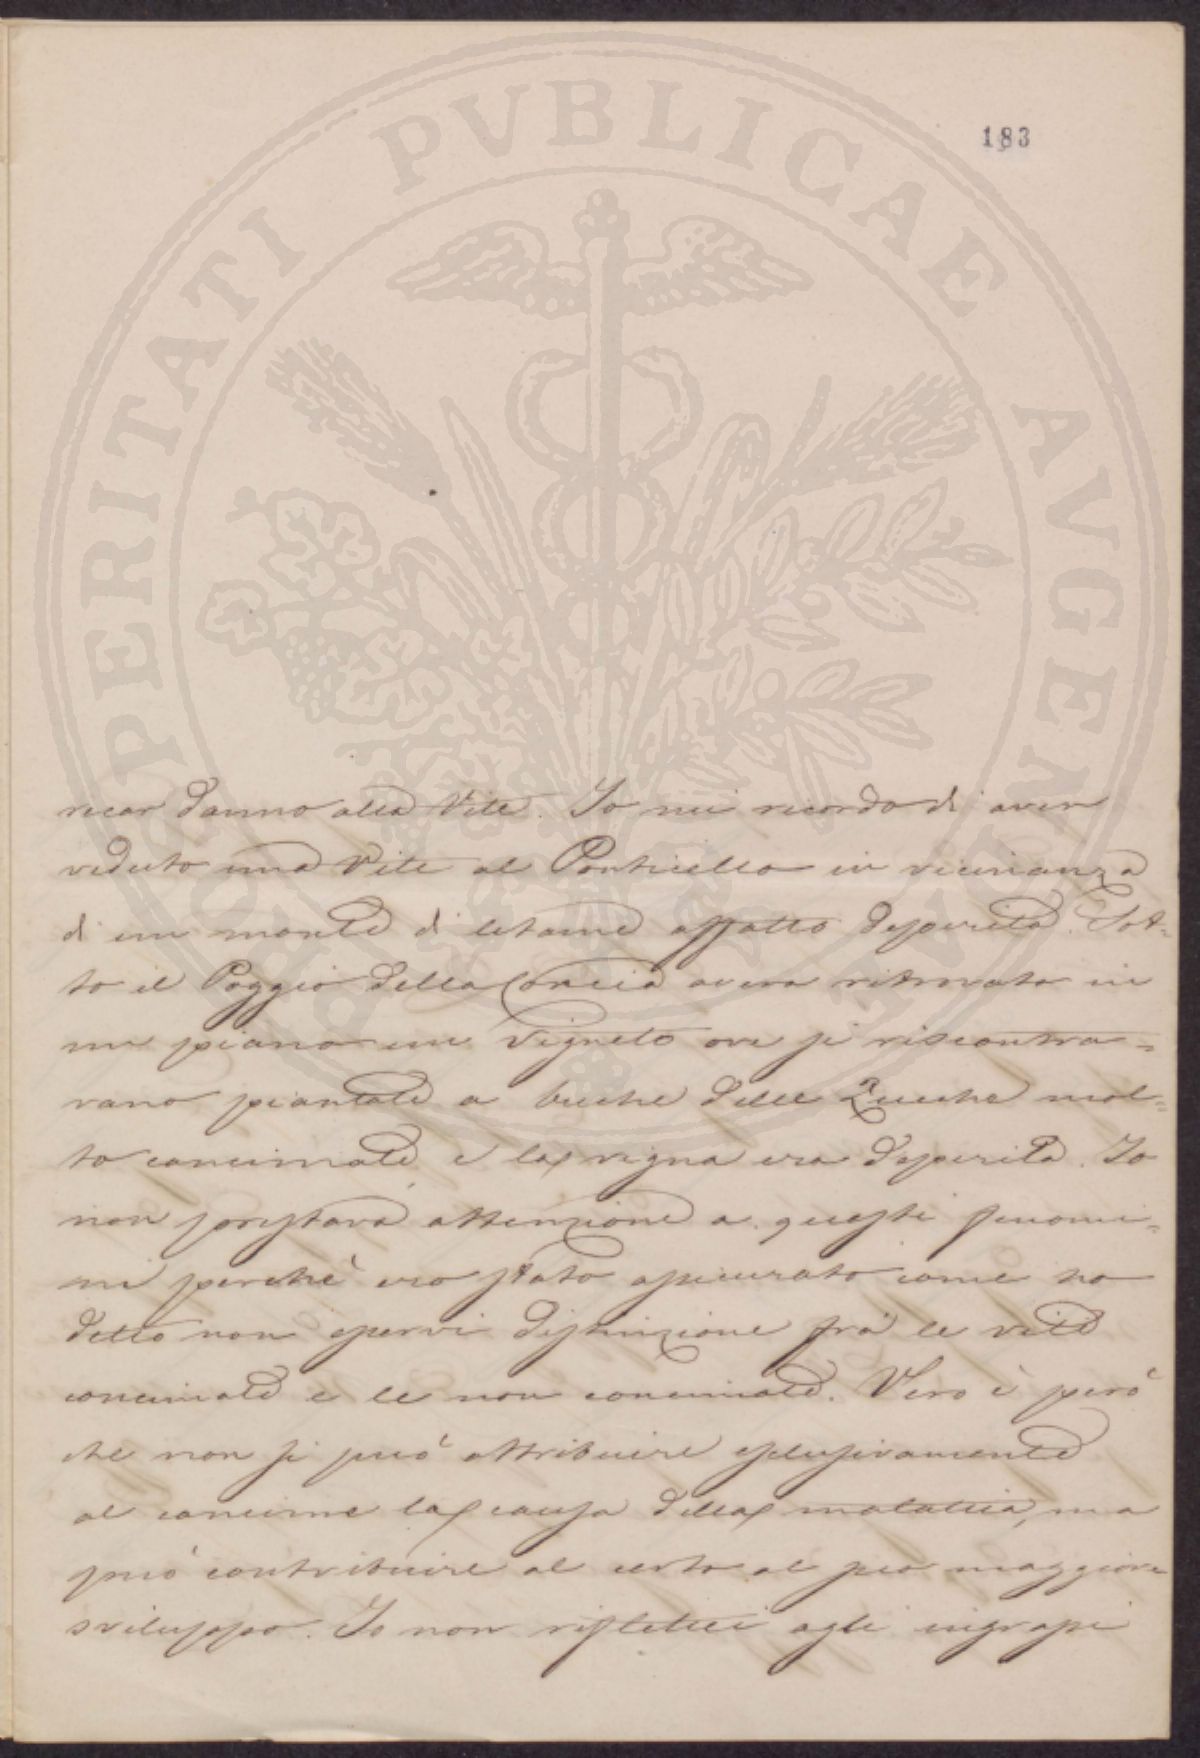 183
PROSPERITATI PVBLICAE AVGENDAE
recar danno alla Vite. Io mi ricordo di aver
veduto una Vite al Ponticello in vicinanza
di un monte di letame affatto deperita. Sot-
to il Poggio della aveva ritrovato in
un piano un Vigneto ove si riscontra=
vano piantate a buche delle Zucche mol=
to concimate e la vigna era deperita. Io
non prestava attenzione a questi fenome=
ni perchè ero stato assicurato come ho
detto non esservi distinzione frà le vite
concimate e le non concimate. Vero è però
che non si può attribuire esclusivamente
al concime la causa della malattia, ma
può contribuire al certo al suo maggiore
sviluppo. Io non riflettei agli ingrassi